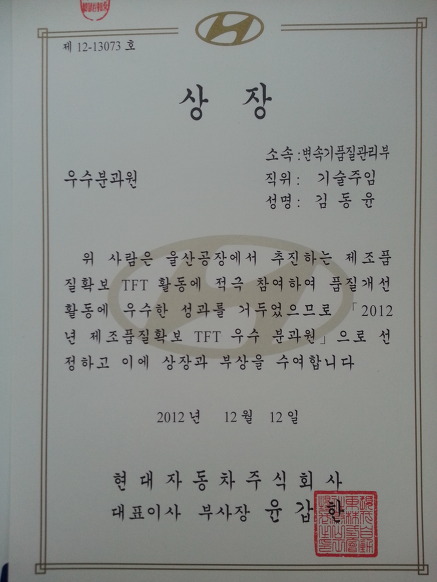 제 12-13073 호
상 장
소속 : 변속기품질관리부
우수분과원
직위 : 기술주임
성명 : 김동윤
위 사람은 울산공장에서 추진하는 제조품
질확보 TFT 활동에 적극 참여하여 품질개선
활동에 우수한 성과를 거두었으므로 「2012
년 제조품질확보 TFT 우수 분과원」으로 선
정하고 이에 상장과 부상을 수여합니다
2012 년 12 월 12 일
현대자동차주식회사
대표이사 부사장 윤갑한